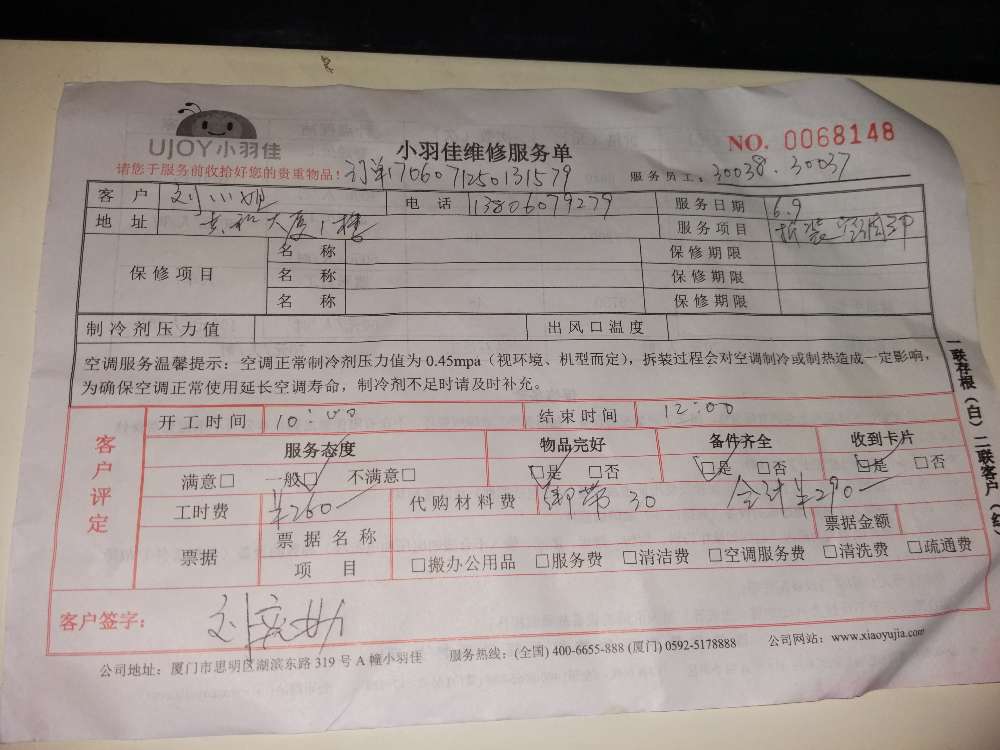 UJOY小羽佳
小羽佳维修服务单
NO. 0068148
请您于服务前收拾好您的贵重物品！
订单1706071250131579
服务员工：30038.30037
客户 刘小姐 电话 13806079279 服务日期 6.9
地址 大厦1楼 服务项目 拆装空调
保修项目 名称 保修期限
名称 保修期限
名称 保修期限
制冷剂压力值 出风口温度
空调服务温馨提示：空调正常制冷剂压力值为 0.45mpa（视环境、机型而定），拆装过程会对空调制冷或制热造成一定影响，
为确保空调正常使用延长空调寿命，制冷剂不足时请及时补充。
客户评定
开工时间 10:00 结束时间 12:00
服务态度 物品完好 备件齐全 收到卡片
满意□ 一般□ 不满意□ □是 □否 □是 □否 □是 □否
工时费 ¥260 代购材料费 绑带 30 合计¥290
票据 票据名称 票据金额
项目 □搬办公用品 □服务费 □清洁费 □空调服务费 □清洗费 □疏通费
客户签字：
公司地址：厦门市思明区湖滨东路 319 号 A 幢小羽佳 服务热线：(全国) 400-6655-888 (厦门) 0592-5178888 公司网站：www.xiaoyujia.com
一联存根（白）二联客户（红）